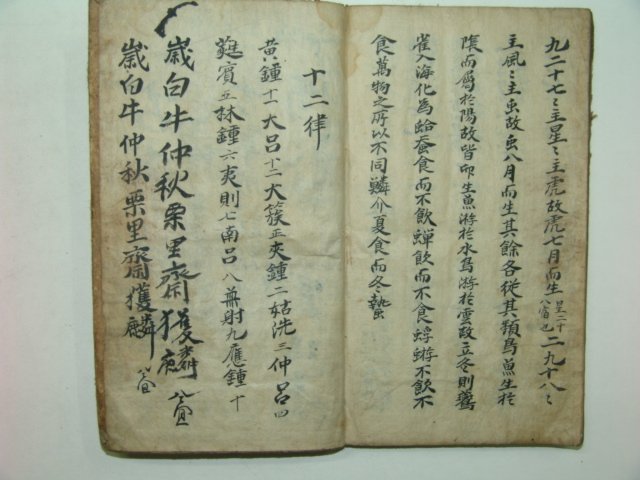 九二十七〻主星〻主虎故虎七月而生星二十八宿也二九十八〻
主風〻主虫故虫八月而生其餘各從其類鳥魚生於
陰而屬於陽故皆卵生魚游於水鳥游於雲故立冬則鷰
雀入海化為蛤蚕食而不飮蟬飮而不食蜉蝣不飮不
食萬物之所以不同鱗介夏食而冬蟄
十二律
黃鐘十一大呂十二大簇正夾鍾二姑洗三仲呂四
蕤賓五林鍾六夷則七南呂八無射九應鍾十
歲白牛仲秋栗里齋獲麟
歲白牛仲秋栗里齋獲麟